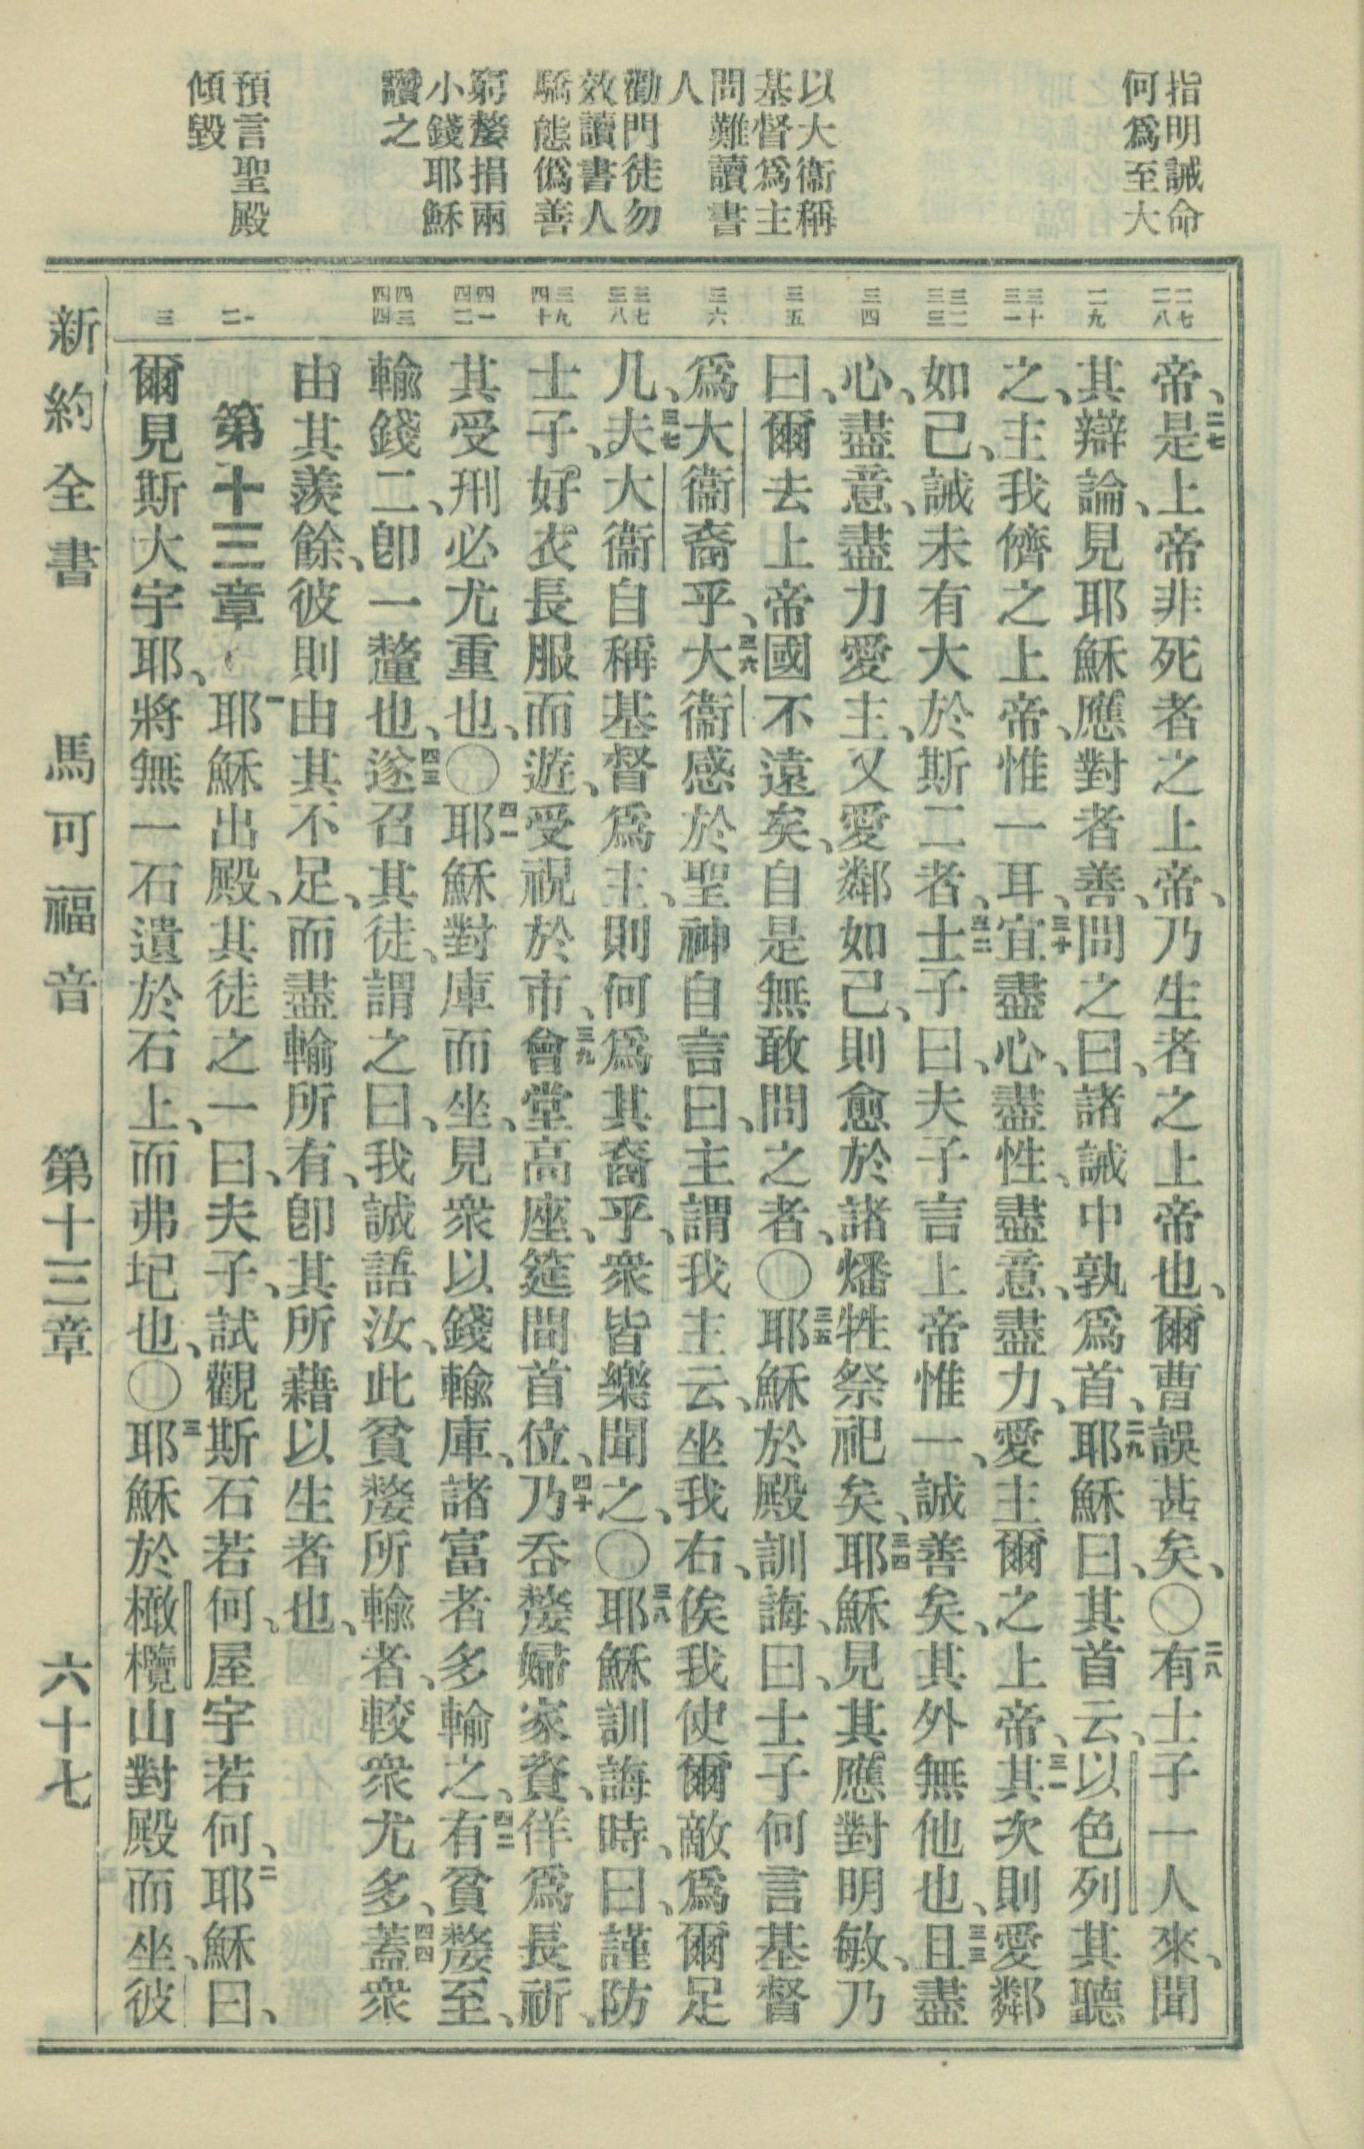 指明誡命
何爲至大
以大衞稱
基督爲主
問難讀書
人
勸門徒勿
效讀書人
驕態僞善
窮嫠捐兩
小錢耶穌
讚之
預言聖殿
傾毀
二七 二八
二九
三十 三一
三二 三三
三四
三五
三六
三七 三八
三九 四十
四一 四二
四三 四四
一 二
三
帝、二七是上帝非死者之上帝、乃生者之上帝也、爾曹誤甚矣、〇二八有士子一人來、聞
其辯論、見耶穌應對者善、問之曰、諸誡中孰爲首、二九耶穌曰、其首云、以色列其聽
之、主我儕之上帝、惟一耳、三十宜盡心、盡性、盡意、盡力、愛主爾之上帝、三一其次則愛鄰
如己、誡未有大於斯二者、三二士子曰、夫子言上帝惟一、誠善矣、其外無他也、三三且盡
心、盡意、盡力愛主、又愛鄰如己、則愈於諸燔牲祭祀矣、三四耶穌見其應對明敏、乃
曰、爾去上帝國不遠矣、自是無敢問之者、〇三五耶穌於殿訓誨、曰、士子何言基督
爲大衞裔乎、三六大衞感於聖神自言曰、主謂我主云、坐我右、俟我使爾敵爲爾足
几、三七夫大衞自稱基督爲主、則何爲其裔乎、衆皆樂聞之、〇三八耶穌訓誨時、曰、謹防
士子、好衣長服而遊、受祝於市、三九會堂高座、筵間首位、四十乃吞嫠婦家資、佯爲長祈、
其受刑必尤重也、〇四一耶穌對庫而坐、見衆以錢輸庫、諸富者多輸之、四二有貧嫠至、
輸錢二、卽一釐也、四三遂召其徒、謂之曰、我誠語汝、此貧嫠所輸者、較衆尤多、四四蓋衆
由其羨餘、彼則由其不足、而盡輸所有、卽其所藉以生者也、
第十三章 一耶穌出殿、其徒之一曰、夫子、試觀斯石若何、屋宇若何、二耶穌曰、
爾見斯大宇耶、將無一石遺於石上、而弗圮也、〇三耶穌於橄欖山對殿而坐、彼
新約全書 馬可福音 第十三章 六十七